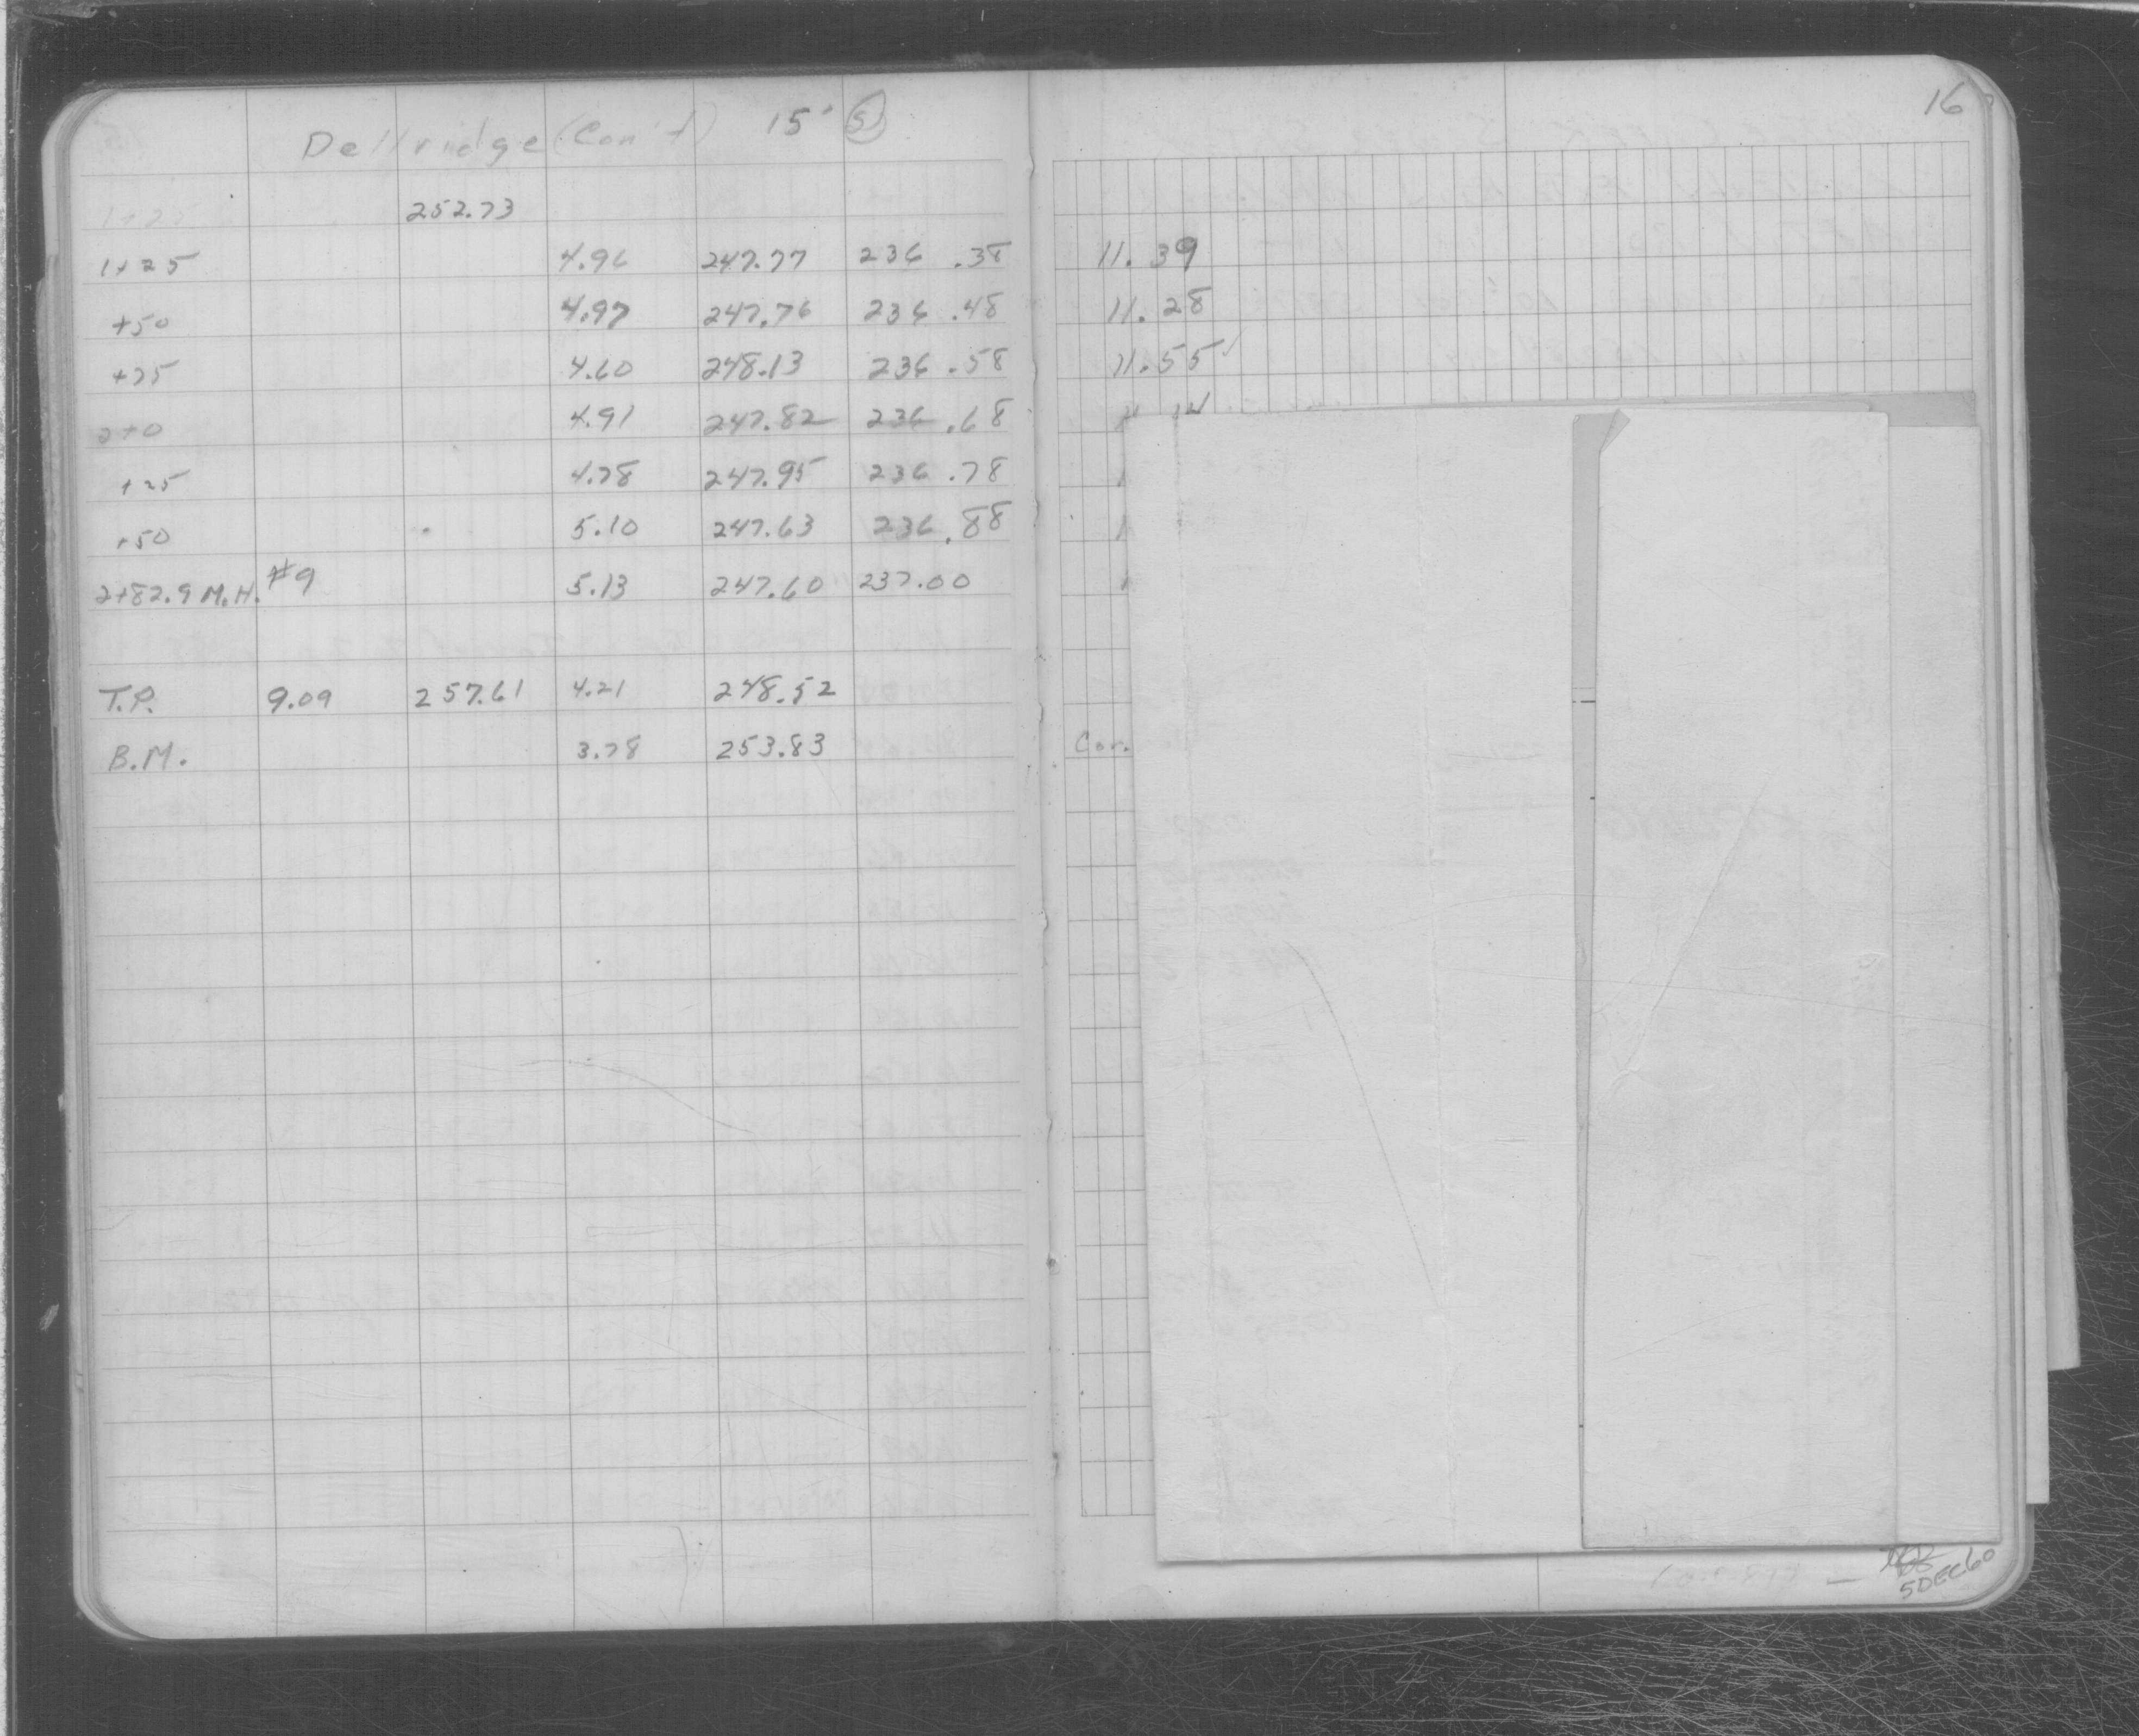 Dellridge (Con't) 15" S
16
1+25 252.73
1+25 4.96 247.77 236 .38 11.39
+50 4.97 247.76 236 .48 11.28
+75 4.60 248.13 236 .58 11.55 ✓
2+0 4.91 247.82 236 .68
+25 4.78 247.95 236 .78
+50 5.10 247.63 236 .88
2+82.9 M.H. #9 5.13 247.60 237.00
T.P. 9.09 257.61 4.21 248.52
B.M. 3.78 253.83 Cor.
5DEC60